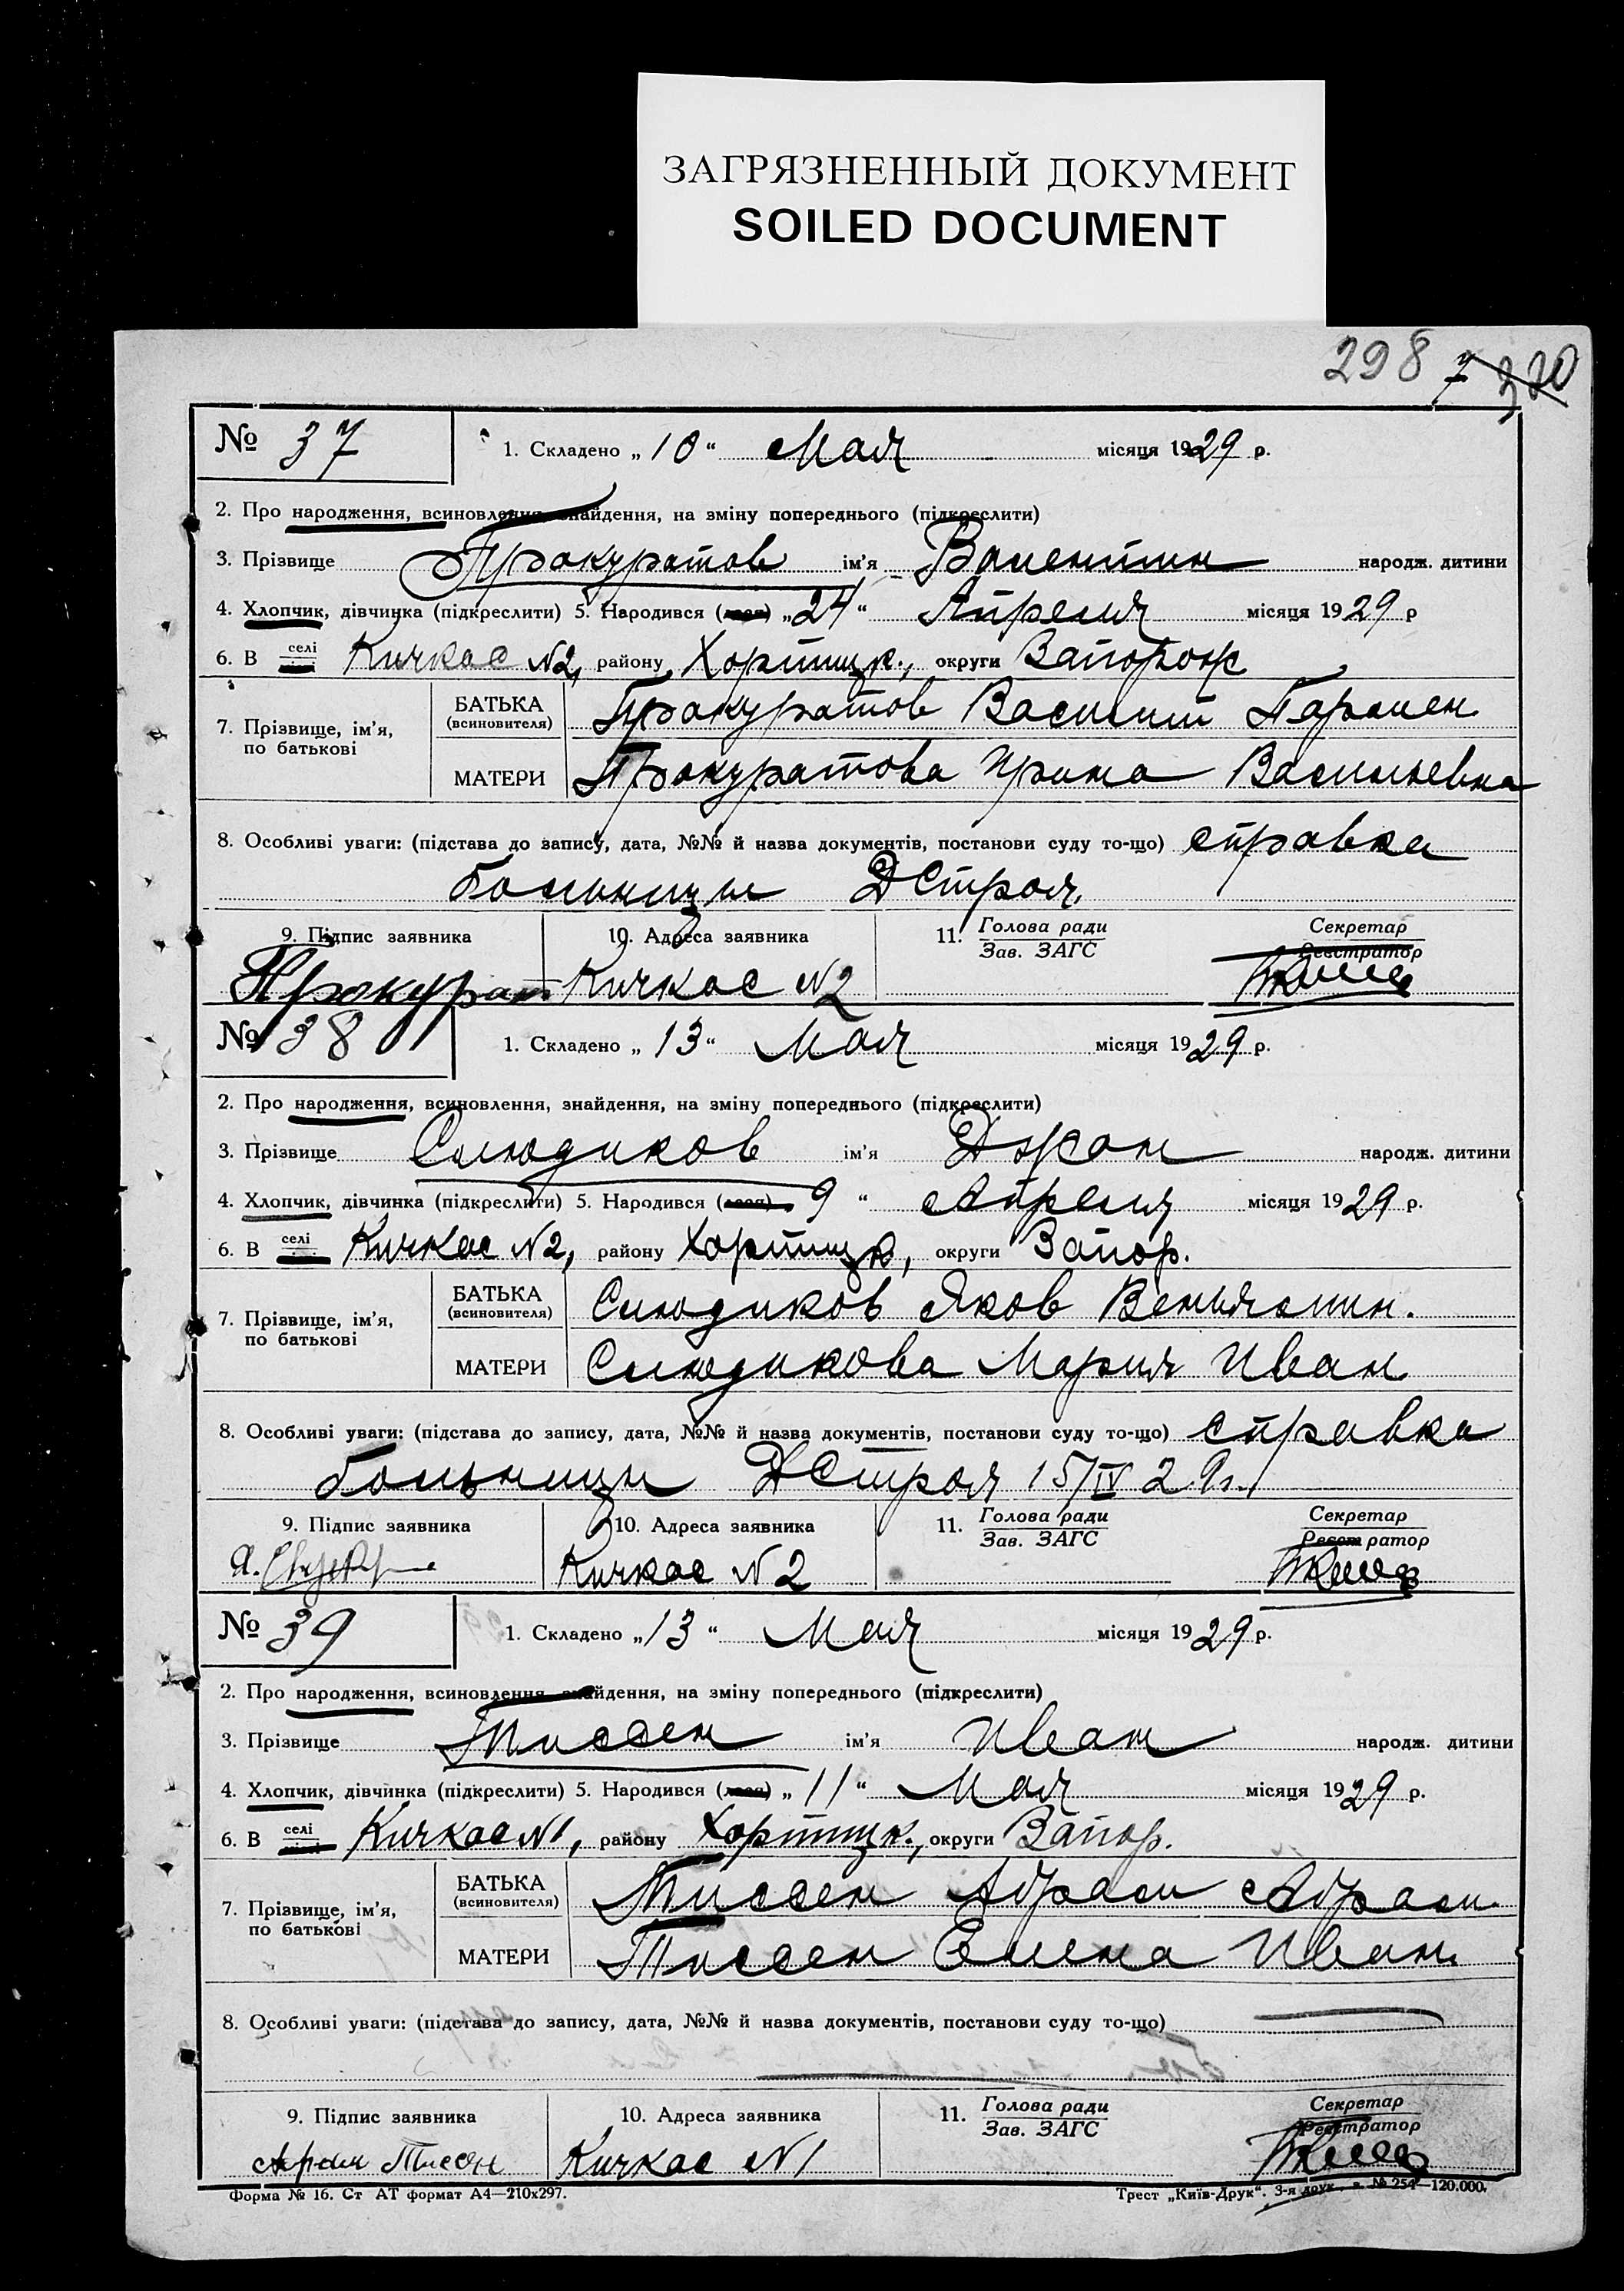 ЗАГРЯЗНЕННЫЙ ДОКУМЕНТ
SOILED DOCUMENT
298 7 320
№ 37
1. Складено „ 10 “ Мая місяця 1929 р.
2. Про народження, всиновлення, знайдення, на зміну попереднього (підкреслити)
3. Прізвище Прокуратов ім'я Валентин народж. дитини
4. Хлопчик, дівчинка (підкреслити) 5. Народився (лася) „ 24 “ Апреля місяця 1929 р
6. В селі Кичкас N2, району Хортицк., округи Запорож
7. Прізвище, ім'я, по батькові
БАТЬКА (всиновителя) Прокуратов Василий Пармен
МАТЕРИ Прокуратова Ирина Васильевна
8. Особливі уваги: (підстава до запису, дата, №№ й назва документів, постанови суду то-що) справка
больницы ДСтроя,
9. Підпис заявника 10. Адреса заявника 11. Голова ради Секретар
Зав. ЗАГС Реєстратор
Прокурат Кичкас N2
№ 38
1. Складено „ 13 “ Мая місяця 1929 р.
2. Про народження, всиновлення, знайдення, на зміну попереднього (підкреслити)
3. Прізвище Слюдиков ім'я Джон народж. дитини
4. Хлопчик, дівчинка (підкреслити) 5. Народився (лася) 9 “ Апреля місяця 1929 р.
6. В селі Кичкас N2, району Хортицк, округи Запор.
7. Прізвище, ім'я, по батькові
БАТЬКА (всиновителя) Слюдиков Яков Веньямин.
МАТЕРИ Слюдикова Мария Иван
8. Особливі уваги: (підстава до запису, дата, №№ й назва документів, постанови суду то-що) справка
больницы ДСтроя 15/IV 29г.
9. Підпис заявника 10. Адреса заявника 11. Голова ради Секретар
Зав. ЗАГС Реєстратор
Кичкас N2
№ 39
1. Складено „ 13 “ Мая місяця 1929 р.
2. Про народження, всиновлення, знайдення, на зміну попереднього (підкреслити)
3. Прізвище Тиссен ім'я Иван народж. дитини
4. Хлопчик, дівчинка (підкреслити) 5. Народився (лася) „ 11 “ Мая місяця 1929 р.
6. В селі Кичкас N1, району Хортицк., округи Запор.
7. Прізвище, ім'я, по батькові
БАТЬКА (всиновителя) Тиссен Абрам Абрам.
МАТЕРИ Тиссен Елена Иван.
8. Особливі уваги: (підстава до запису, дата, №№ й назва документів, постанови суду то-що)
9. Підпис заявника 10. Адреса заявника 11. Голова ради Секретар
Зав. ЗАГС Реєстратор
Тиссен Кичкас N1
Форма № 16. Ст АТ формат А4—210х297. Трест „Київ-Друк“. 3-я друк. з. № 254—120.000.